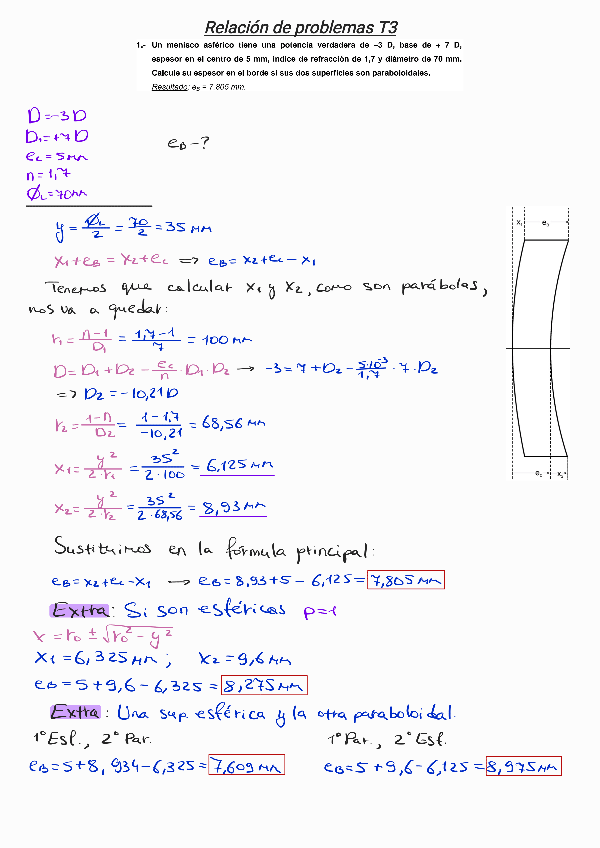 Relación de problemas T3
1.- Un menisco asférico tiene una potencia verdadera de –3 D, base de + 7 D,
espesor en el centro de 5 mm, índice de refracción de 1,7 y diámetro de 70 mm.
Calcule su espesor en el borde si sus dos superficies son paraboloidales.
Resultado: e_B = 7.805 mm.
D = -3 D
D₁ = +7 D
e_C = 5 mm
n = 1,7
Ø_L = 70 mm
e_B - ?
y = Ø_L/2 = 70/2 = 35 mm
x₁ + e_B = x₂ + e_C => e_B = x₂ + e_C - x₁
Tenemos que calcular x₁ y x₂, como son parábolas,
nos va a quedar:
r₁ = n-1/D₁ = 1,7-1/7 = 100 mm
D = D₁ + D₂ - e_C/n · D₁ · D₂ → -3 = 7 + D₂ - 5·10⁻³/1,7 · 7 · D₂
=> D₂ = -10,21 D
r₂ = 1-n/D₂ = 1-1,7/-10,21 = 68,56 mm
x₁ = y²/2·r₁ = 35²/2·100 = 6,125 mm
x₂ = y²/2·r₂ = 35²/2·68,56 = 8,93 mm
Sustituimos en la fórmula principal:
e_B = x₂ + e_C - x₁ → e_B = 8,93 + 5 - 6,125 = 7,805 mm
Extra: Si son esféricos p=1
x = r₀ ± √r₀² - y²
x₁ = 6,325 mm ; x₂ = 9,6 mm
e_B = 5 + 9,6 - 6,325 = 8,275 mm
Extra: Una sup. esférica y la otra paraboloidal.
1º Esf., 2º Par. 1º Par., 2º Esf.
e_B = 5 + 8,934 - 6,325 = 7,609 mm e_B = 5 + 9,6 - 6,125 = 8,975 mm